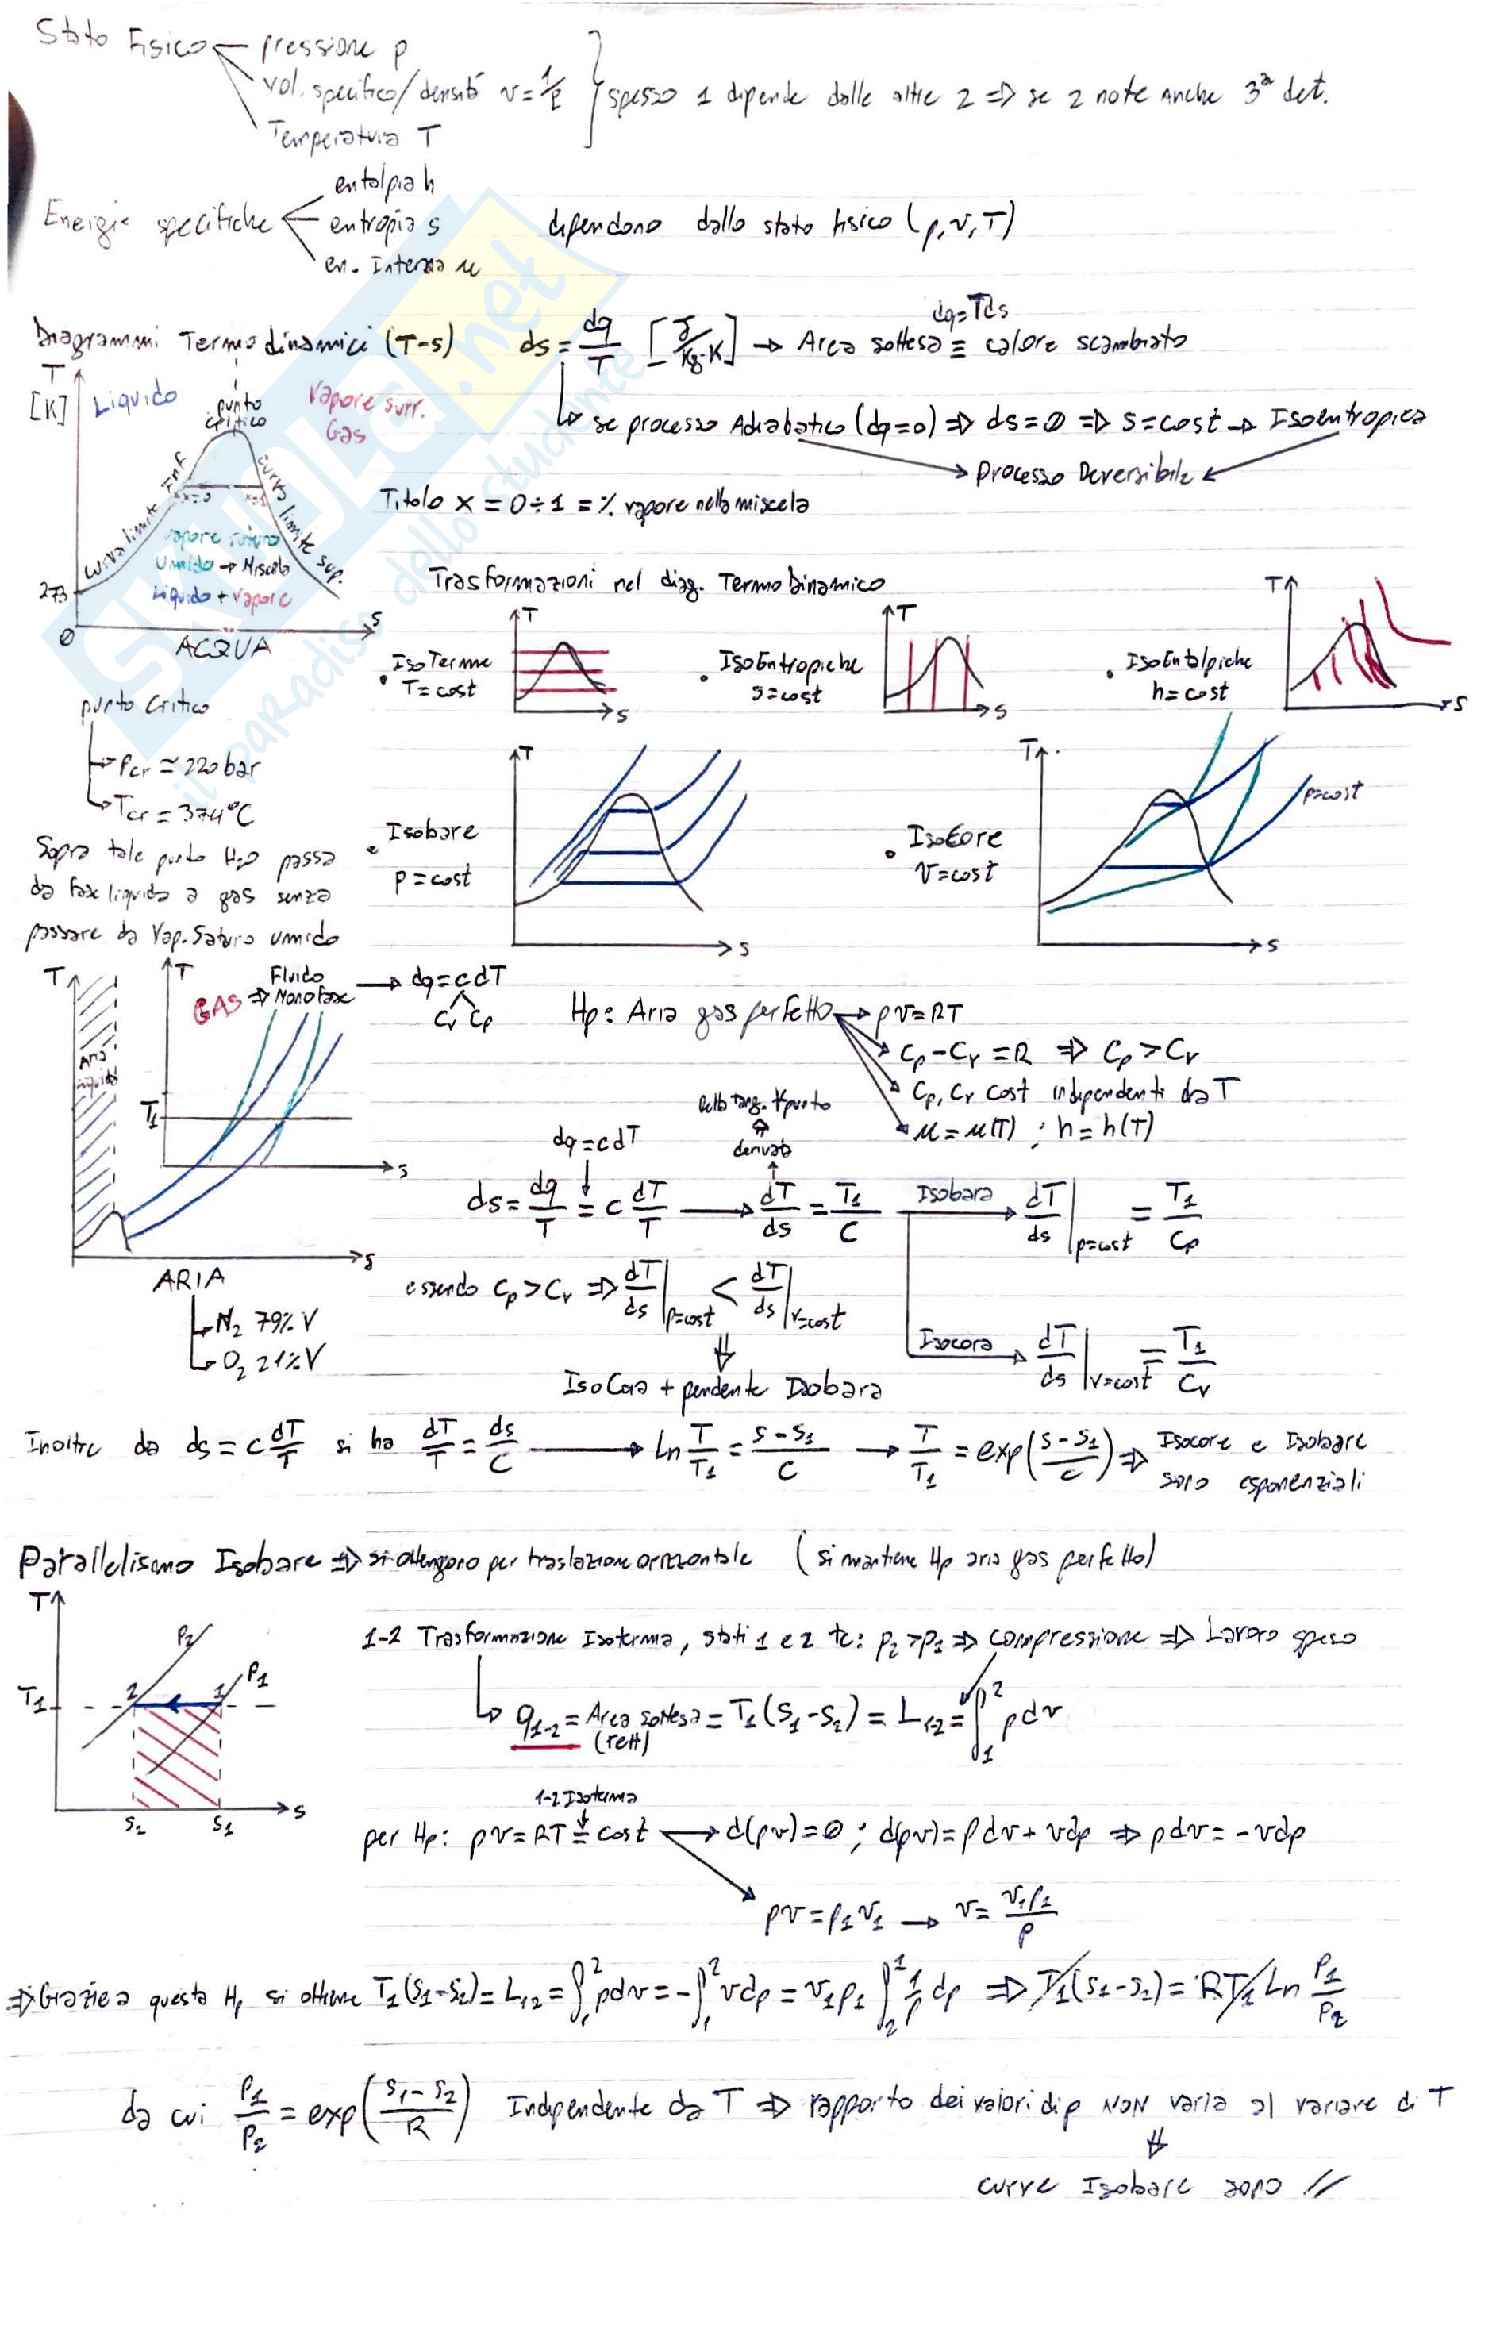 Stato Fisico
pressione p
vol. specifico/densità v=1/ρ
Temperatura T
} spesso 1 dipende dalle altre 2 => se 2 note anche 3ª det.
Energie specifiche
entalpia h
entropia s
en. Interna u
dipendono dallo stato fisico (p, v, T)
Diagrammi Termodinamici (T-s)
ds = dq/T [J/kg·K] → Area sottesa ≡ calore scambiato
dq=Tds
se processo Adiabatico (dq=0) => ds=0 => s=cost → Isoentropica
Processo Reversibile
Titolo x = 0÷1 = % vapore nella miscela
T
[K]
Liquido
punto critico
Vapore surr.
Gas
curva limite inf.
x=0
x=1
curva limite sup.
vapore saturo
umido → Miscela
liquido + vapore
273
0
s
ACQUA
punto critico
Pcr ≃ 220 bar
Tcr = 374°C
Sopra tale punto H2O passa
da fase liquida a gas senza
passare da Vap. Saturo umido
Trasformazioni nel diag. TermoDinamico
• IsoTerme
T=cost
T
s
• IsoEntropiche
s=cost
T
s
• IsoEntalpiche
h=cost
T
s
• Isobare
p=cost
T
s
• IsoCore
v=cost
T
s
p=cost
T
T
GAS => Fluido
MonoFase
→ dq=cdT
cv cp
T1
s
s
ARIA
N2 79% V
O2 21% V
Hp: Aria gas perfetto → pv=RT
cp-cv=R => cp>cv
cp, cv cost indipendenti da T
u=u(T) ; h=h(T)
derivata
dq=cdT
ds = dq/T = c dT/T → dT/ds = T1/c
Isobara → dT/ds |p=cost = T1/cp
Isocora → dT/ds |v=cost = T1/cv
essendo cp>cv => dT/ds |p=cost < dT/ds |v=cost
IsoCora + pendente Isobara
Inoltre da ds=c dT/T si ha dT/T = ds/c → ln T/T1 = (s-s1)/c → T/T1 = exp((s-s1)/c) => Isocore e Isobare
sono esponenziali
Parallelismo Isobare => si ottengono per traslazione orizzontale (si mantiene Hp aria gas perfetto)
T
P2
P1
T1
2
1
s2
s1
s
1-2 Trasformazione Isoterma, stati 1 e 2 tc: p2>p1 => compressione => Lavoro speso
q1-2 = Area sottesa = T1(s1-s2) = L1-2 = ∫₁² pdv
(rett)
1-2 Isoterma
per Hp: pv=RT = cost → d(pv)=0 ; d(pv)=pdv+vdp => pdv=-vdp
pv=p1v1 → v= v1p1/p
=> Grazie a questa Hp si ottiene T1(s1-s2)=L12=∫₁² pdv=-∫₁² vdp = v1p1 ∫₂¹ 1/p dp => T1(s1-s2) = RT1 ln P1/P2
da cui P1/P2 = exp((s1-s2)/R) Indipendente da T => rapporto dei valori di p NON varia al variare di T
curve Isobare sono //
SKUOLA.net
il paradiso dello studente